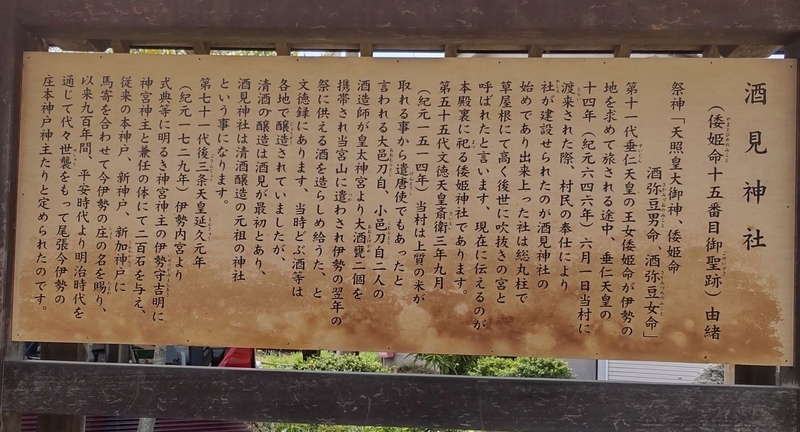 酒見神社
（倭姫命十五番目御聖跡）由緒
祭神「天照皇大御神、倭姫命
酒弥豆男命　酒弥豆女命」
第十一代垂仁天皇の王女倭姫命が伊勢の
地を求めて旅される途中、垂仁天皇の
十四年（紀元六四六年）六月一日当村に
渡来された際、村民の奉仕により
社が建設せられたのが酒見神社の
始めであり出来上った社は総丸柱で
草屋根にて高く後世に吹抜きの宮と
呼ばれたと言います、現在に伝えるのが
本殿裏に祀る倭姫神社であります。
第五十五代文徳天皇斎衛三年九月
（紀元一五一四年）当村は上質の米が
取れる事から遣唐使でもあったと
言われる大邑刀自、小邑刀自二人の
酒造師が皇太神宮より大酒甕二個を
携帯され当宮山に遣わされ伊勢の翌年の
祭に供える酒を造らしめ給うた、と
文徳録にあります、当時どぶ酒等は
各地で醸造されていましたが、
清酒の醸造は酒見が最初とあり、
酒見神社は清酒醸造の元祖の神社
という事になります。
第七十一代後三条天皇延久元年
（紀元一七二九年）伊勢内宮より
式典等に明るき神宮神主の伊勢守吉明に
神宮神主と兼任の体にて二百石を与え、
従来の本神戸、新神戸、新加神戸に
馬寄を合わせて今伊勢の庄の名を賜り、
以来九百年間、平安時代より明治時代を
通じて代々世襲をもって尾張今伊勢の
庄本神戸神主たりと定められたのです。